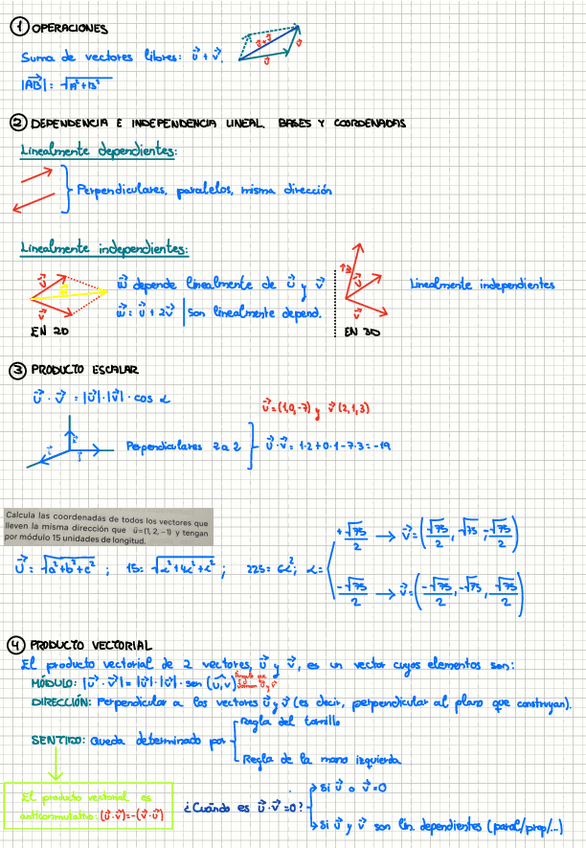 ① OPERACIONES
Suma de vectores libres: u⃗ + v⃗.
u⃗+v⃗ v⃗
u⃗
|AB⃗| = √A²+B²
② DEPENDENCIA E INDEPENDENCIA LINEAL. BASES Y COORDENADAS
Linealmente dependientes:
Perpendiculares, paralelos, misma dirección
Linealmente independientes:
u⃗ w⃗ v⃗
w⃗ depende linealmente de u⃗ y v⃗
w⃗ = u⃗ + 2v⃗ | son linealmente depend.
EN 2D
w⃗ u⃗ v⃗
Linealmente independientes
EN 3D
③ PRODUCTO ESCALAR
u⃗ · v⃗ = |u⃗|·|v⃗|· cos α
u⃗ = (1,0,-7) y v⃗ (2,1,3)
Perpendiculares 2 a 2
u⃗·v⃗ = 1·2+0·1-7·3 = -19
Calcula las coordenadas de todos los vectores que
lleven la misma dirección que u⃗=(1, 2, -1) y tengan
por módulo 15 unidades de longitud.
u⃗ = √a²+b²+c² ; 15 = √α²+4α²+α² ; 225 = 6α² ; α =
+√75/2 → v⃗ = (√75/2, √75, -√75/2)
-√75/2 → v⃗ = (-√75/2, -√75, √75/2)
④ PRODUCTO VECTORIAL
El producto vectorial de 2 vectores, u⃗ y v⃗, es un vector cuyos elementos son:
MÓDULO: |u⃗ · v⃗| = |u⃗|·|v⃗| · sen (u,v) Ángulo que forman u⃗ y v⃗
DIRECCIÓN: Perpendicular a los vectores u⃗ y v⃗ (es decir, perpendicular al plano que construyan).
Regla del tornillo
SENTIDO: Queda determinado por
Regla de la mano izquierda
El producto vectorial es
anticonmutativo: (u⃗·v⃗)=-(v⃗·u⃗)
¿Cuándo es u⃗·v⃗=0?
Si u⃗ o v⃗=0
Si u⃗ y v⃗ son lin. dependientes (paral/prep/...)